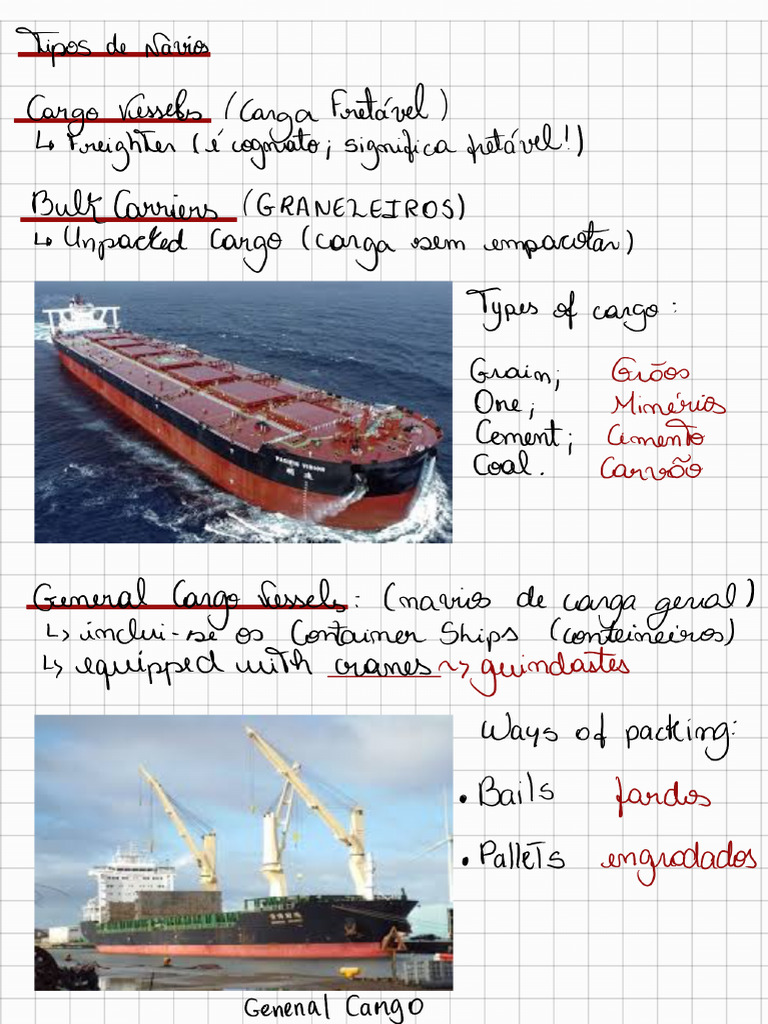 Tipos de Navios
Cargo Vessels (Carga Fretável)
↳ Freighter (é cognato; significa fretável!)
Bulk Carriers (GRANELEIROS)
↳ Unpacked Cargo (carga sem empacotar)
Types of cargo:
Grain; Grãos
Ore; Minérios
Cement; Cimento
Coal. Carvão
PACIFIC VISION
General Cargo Vessels: (navios de carga geral)
↳ inclui-se os Container Ships (conteineiros)
↳ equipped with cranes ~> guindastes
Ways of packing:
• Bails fardos
• Pallets engrodados
General Cargo